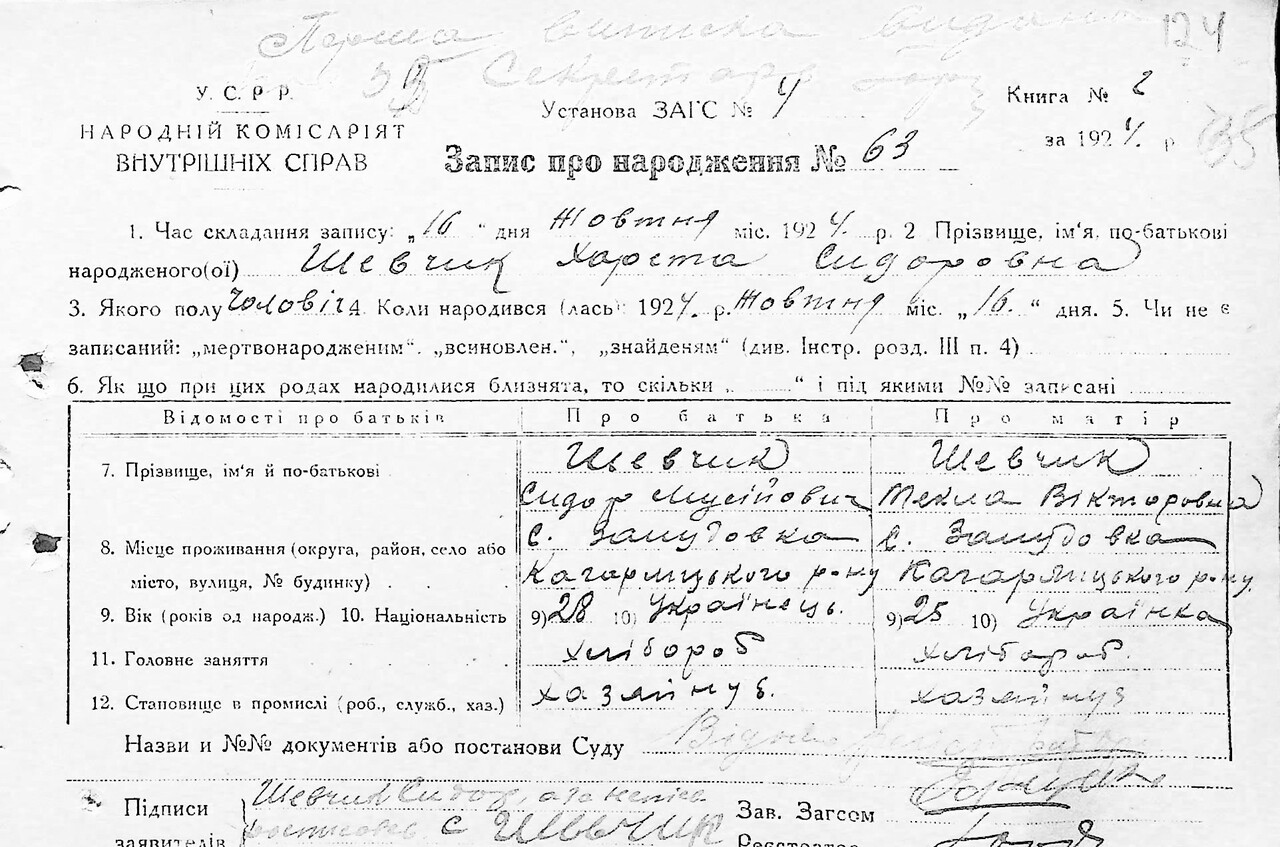 Перша виписка видана 124
У. С. Р Р. Установа ЗАГС № 4 Книга № 2
НАРОДНІЙ КОМІСАРІЯТ за 1924. р 135
ВНУТРІШНІХ СПРАВ Запис про народження № 63
1. Час складання запису: „16 " дня Жовтня міс. 1924. р. 2 Прізвище, ім'я, по-батькові
народженого(ої) Шевчик Хареta Сидоровна
3. Якого полу Чоловіч 4. Коли народився (лась) 1924. р. Жовтня міс. „16. " дня. 5. Чи не є
записаний: „мертвонародженим". „всиновлен.", „знайденям" (див. Інстр. розд. III п. 4)
6. Як що при цих родах народилися близнята, то скільки „ " і під якими №№ записані
Відомості про батьків Про батька Про матір
7. Прізвище, ім'я й по-батькові Шевчик Шевчик
Сидор Мусійович Текла Вікторовна
8. Місце проживання (округа, район, село або с. Замудовка с. Замудовка
місто, вулиця, № будинку) . . Кагарлицького р-ну Кагарлицького р-ну
9. Вік (років од народж.) 10. Національність 9) 28 10) Українець. 9) 25 10) Українка
11. Головне заняття хлібороб хлібороб.
12. Становище в промислі (роб., служб., хаз.) хазяйнує. хазяйнує
Назви и №№ документів або постанови Суду
Підписи Шевчик Сидор, а за Зав. Загсом
заявителів с Шевчик Реєстратор